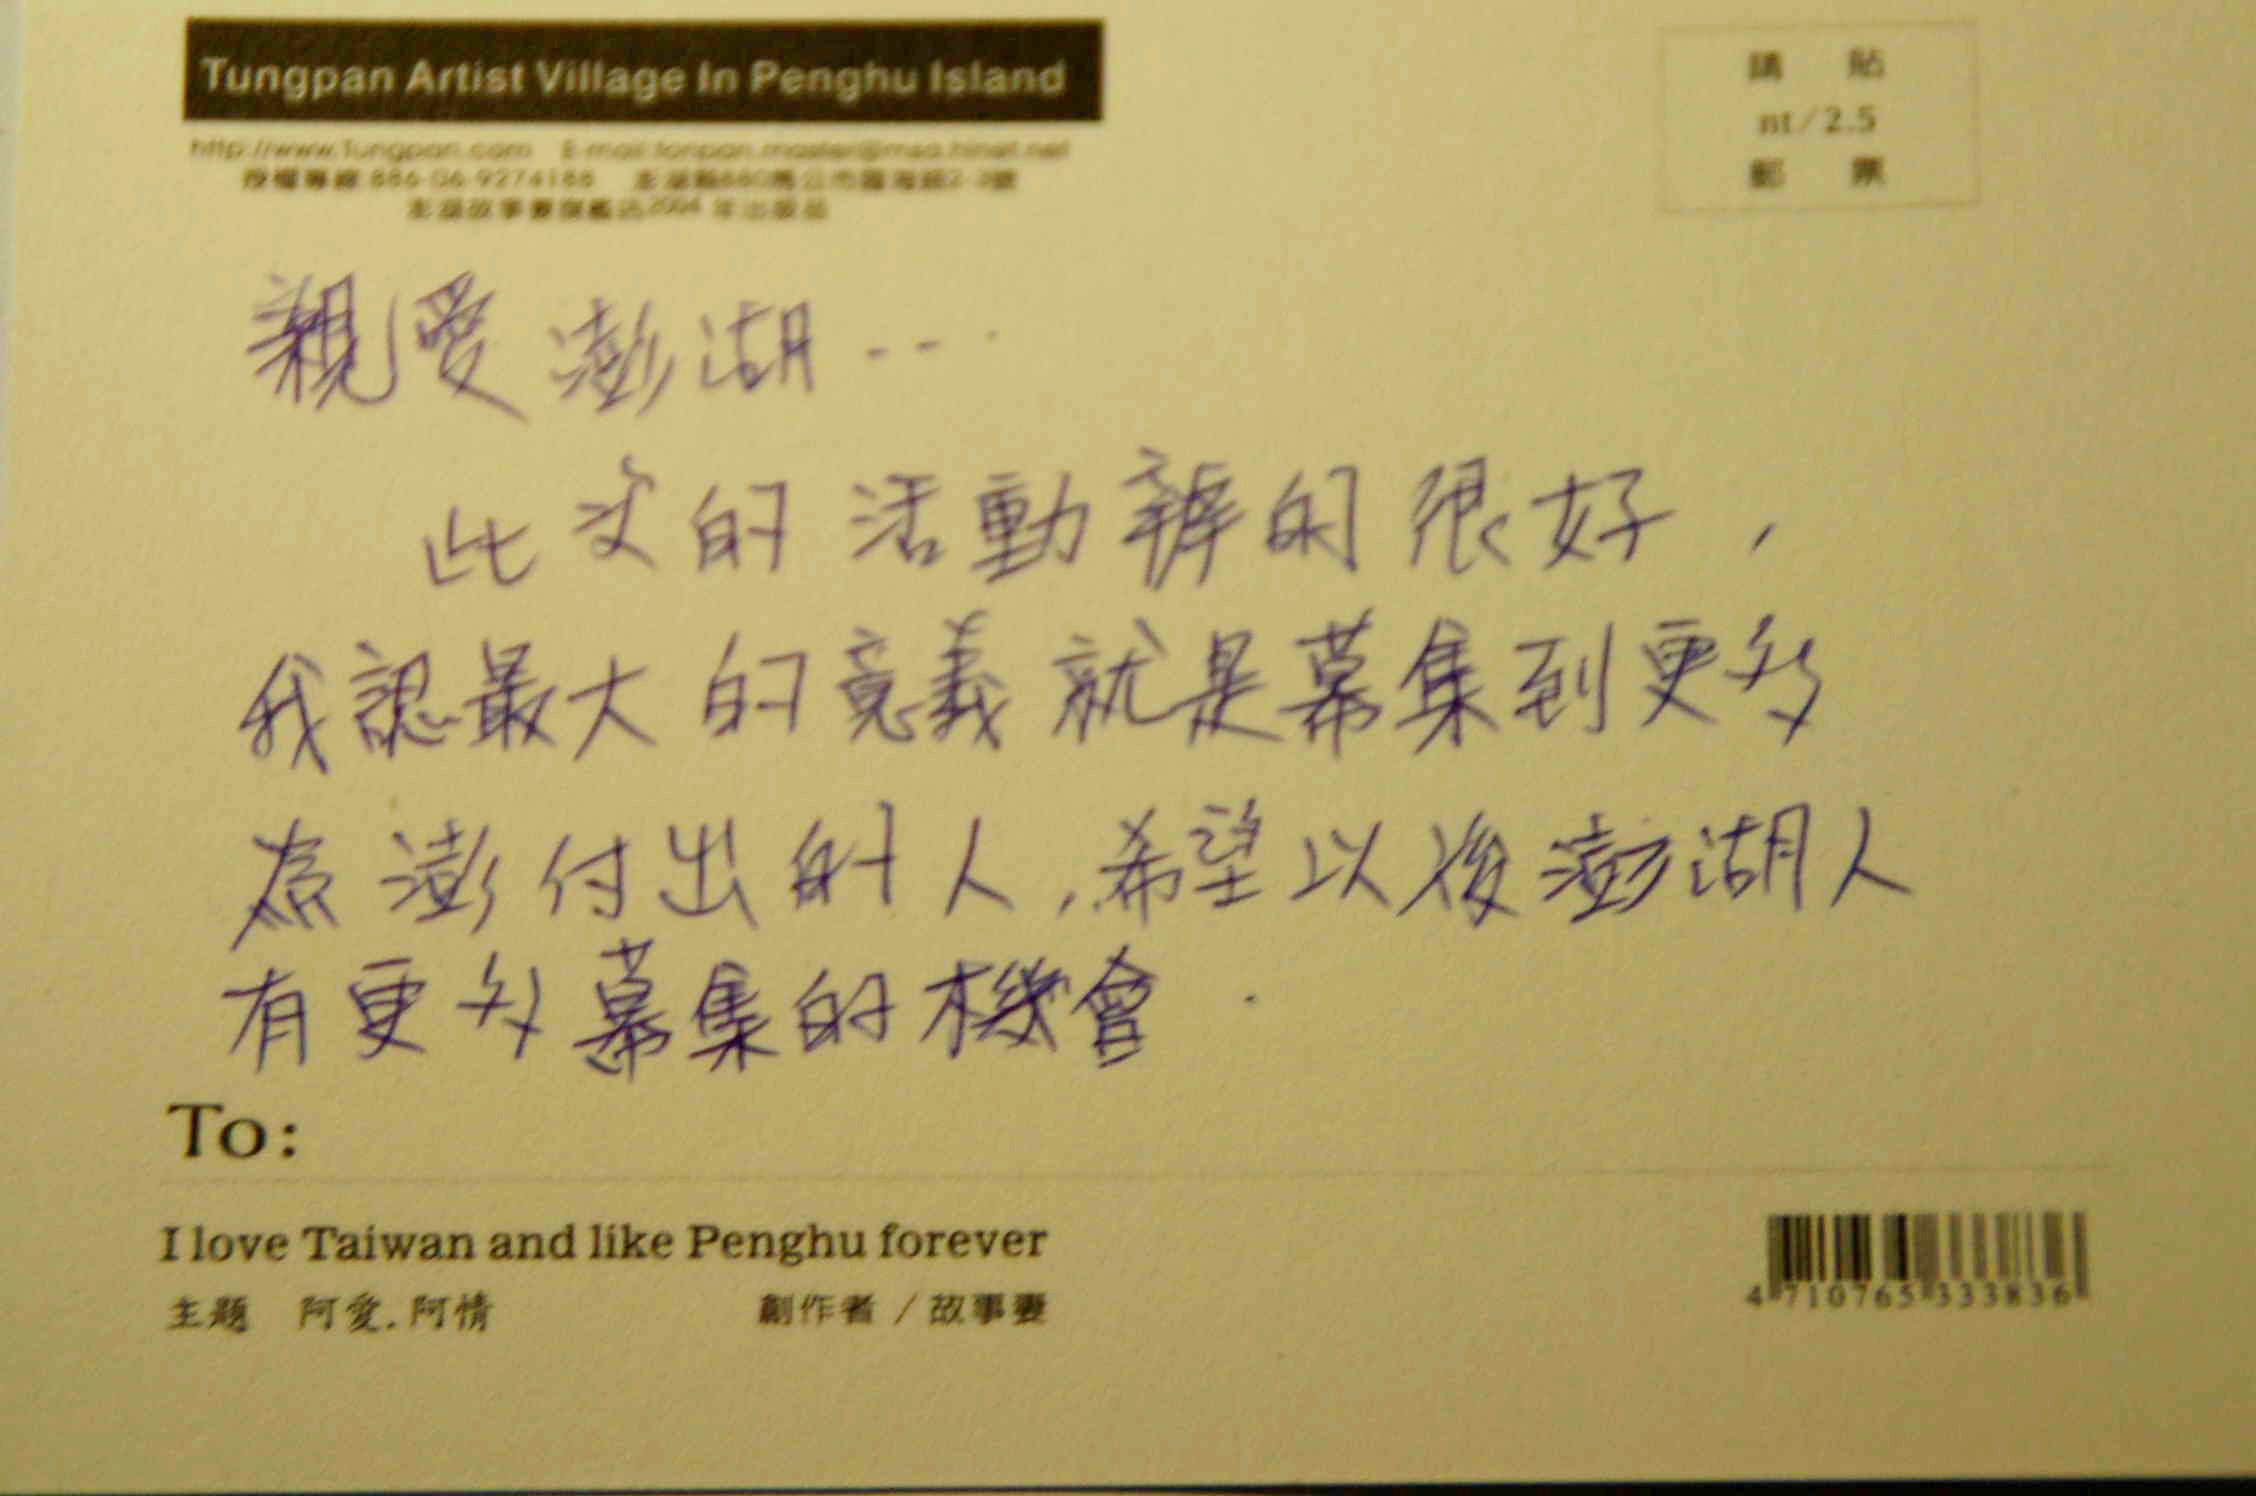 Tungpan Artist Village In Penghu Island
請 貼
nt/2.5
郵 票
http://www.Tungpan.com E-mail:tonpan.master@msa.hinet.net
授權專線:886-06-9274188 澎湖縣880馬公市臨海路2-3號
澎湖故事妻旗艦店2004 年出版品
親愛澎湖---
此次的活動辦的很好，
我認最大的意義就是募集到更多
為澎付出的人,希望以後澎湖人
有更多募集的機會.
To:
I love Taiwan and like Penghu forever
主題 阿愛.阿情 創作者 / 故事妻
4 710765 333836